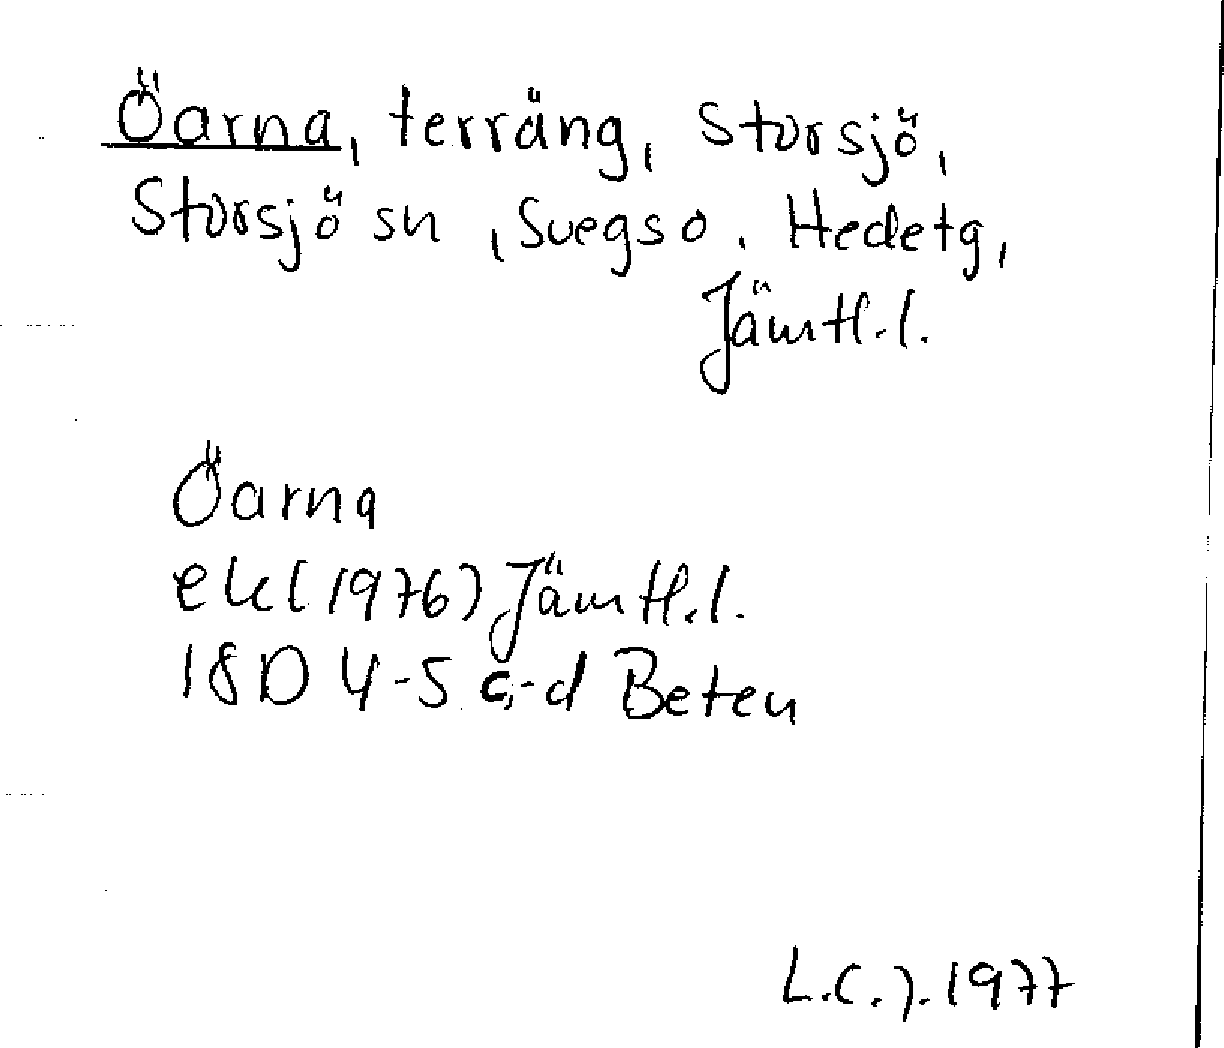 Öarna, terräng, Storsjö,
Storsjö sn, Svegs o. Hedetg,
Jämtl.l.
Öarna
ek (1976) Jämtl.l.
18D 4-5 c-d Beten
L.C.J. 1977